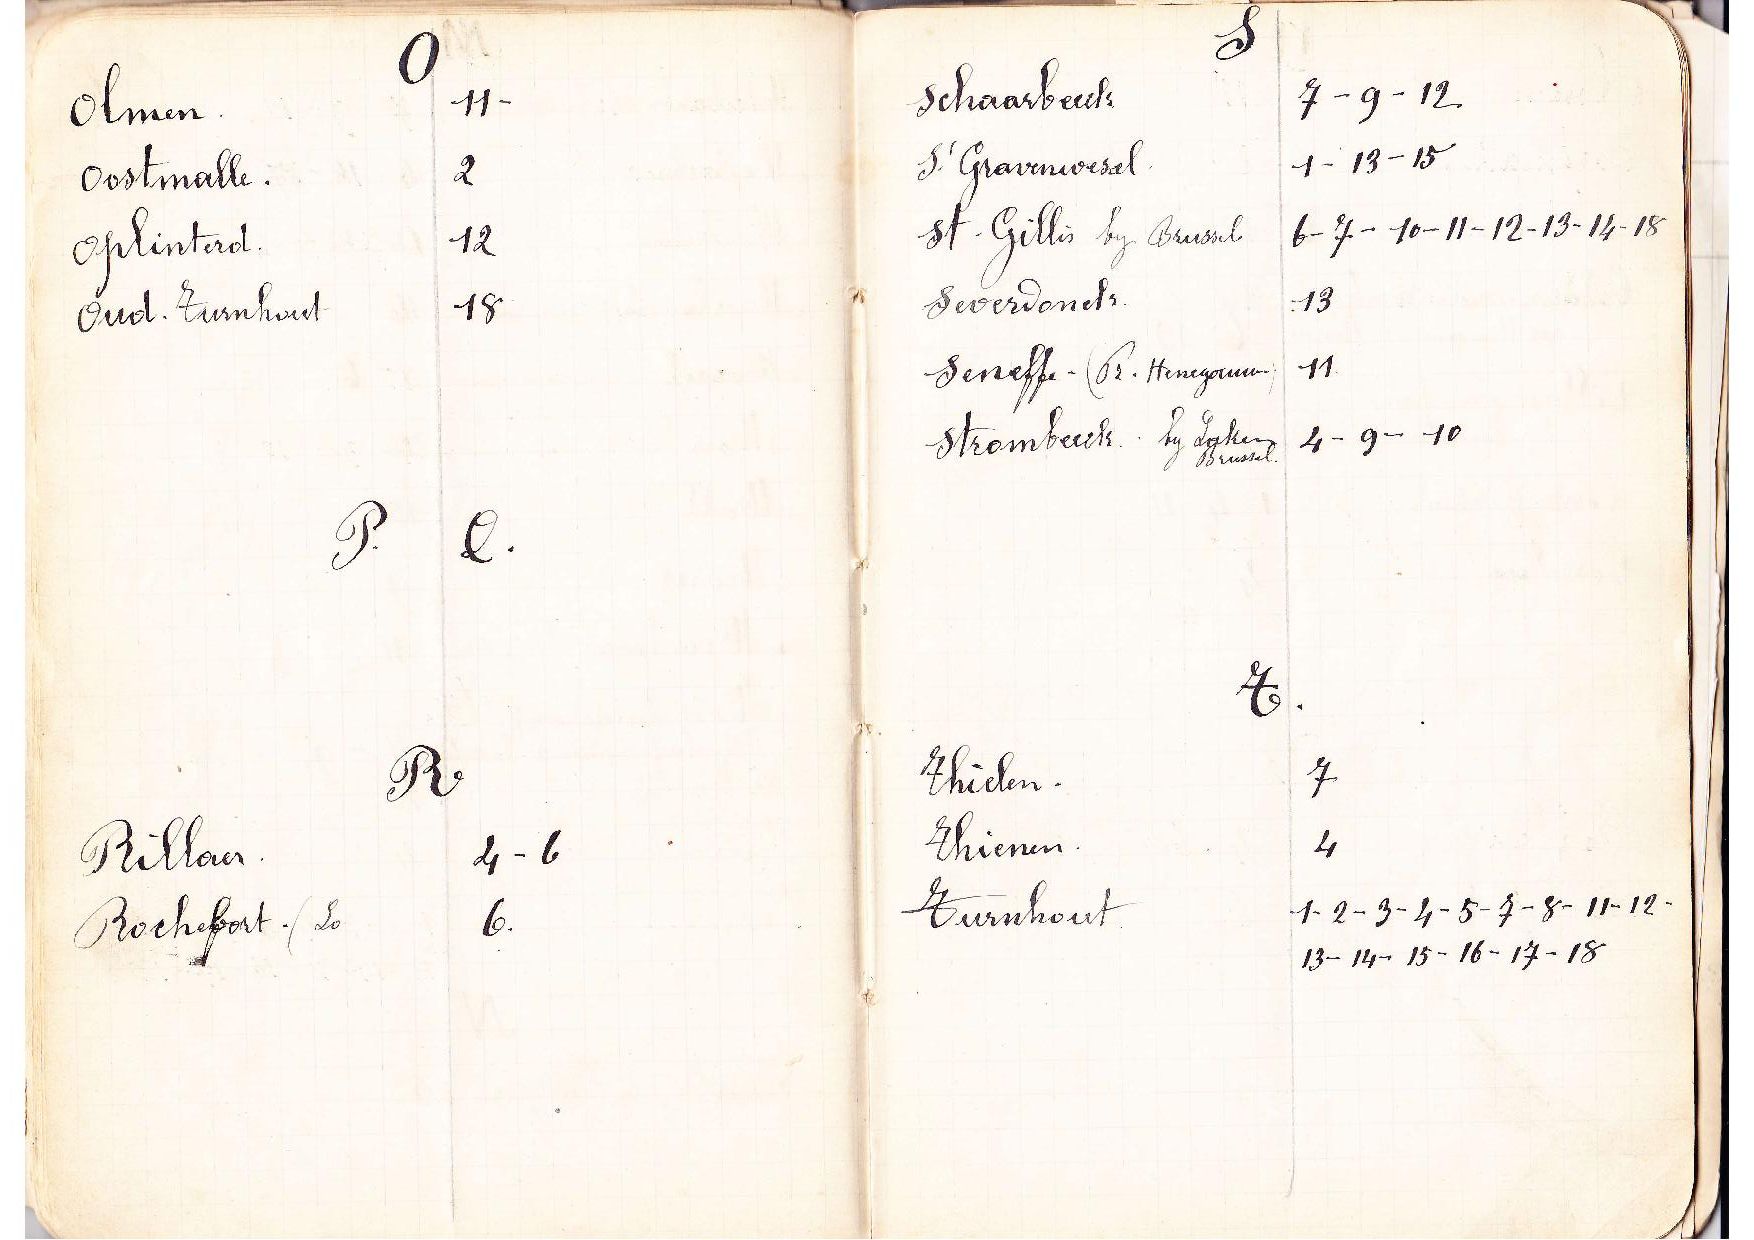 O
Olmen. 11-
Oostmalle. 2
Oplinterd. 12
Oud. Turnhout 18
P. Q.
R.
Rillaer. 4 - 6
Rochefort - (Lo 6.
S
Schaarbeek 7 - 9 - 12
S' Gravenwesel. 1 - 13 - 15
St. Gillis by Brussel 6 - 7 - 10 - 11 - 12 - 13 - 14 - 18
Severdonck. 13
Seneffe - (Pr. Henegouwen) 11
Strombeek. by Laken 4 - 9 - 10
Brussel.
T.
Thielen. 7
Thienen. 4
Turnhout 1 - 2 - 3 - 4 - 5 - 7 - 8 - 11 - 12 -
13 - 14 - 15 - 16 - 17 - 18